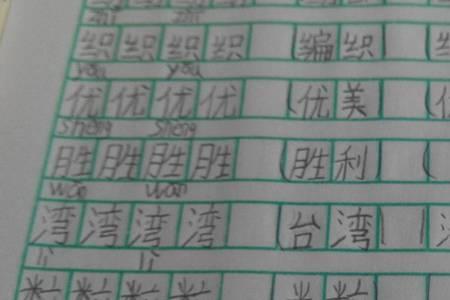 zhī zhī
织织织织 (编织
yōu yōu
优优优优 (优美
shèng shèng
胜胜胜胜 (胜利 (
wān wān
湾湾湾湾 (台湾)
lì lì